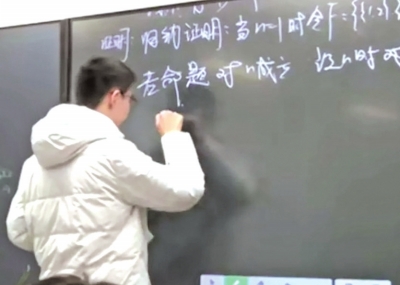 证明:归纳证明:当n=1时令F={{1,2}
若命题对n成立 设n时对